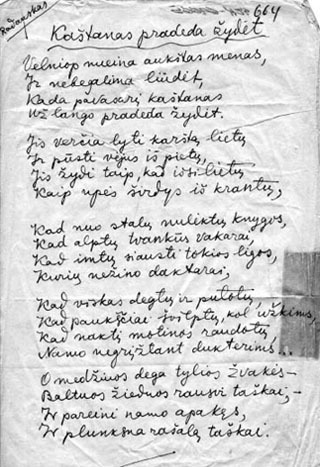 664
Kaštanas pradeda žydėt
Velniop nueina aukštas menas,
Ir nebegalima liūdėt,
Kada pavasarį kaštanas
Už lango pradeda žydėt.
Jis verčia lyti karštą lietų
Ir pūsti vėjus iš pietų,
Jis žydi taip, kad išsilietų
Kaip upės širdys iš krantų,
Kad nuo stalų nuliktų knygos,
Kad alptų tvankūs vakarai,
Kad imtų siausti tokios ligos,
Kurių nežino daktarai,
Kad viskas degtų ir putotų,
Kad paukščiai švilptų, kol užkims,
Kad naktį motinos raudotų,
Namo negrįžtant dukterims...
O medžiuos dega tylios žvakės –
Baltuos žieduos rausvi taškai, –
Ir pareini namo apakęs,
Ir plunksna rašalą taškai.